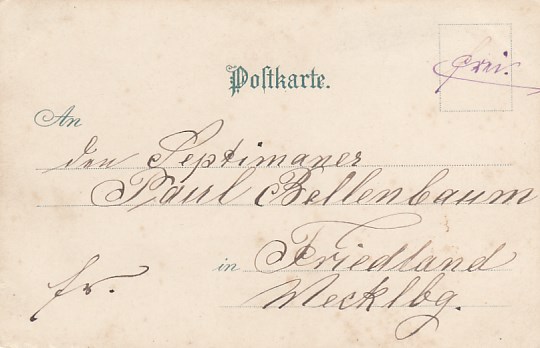 frei.
Postkarte.
An
den Septimaner
Paul Bellenbaum
in Friedland
fr. Mecklbg.